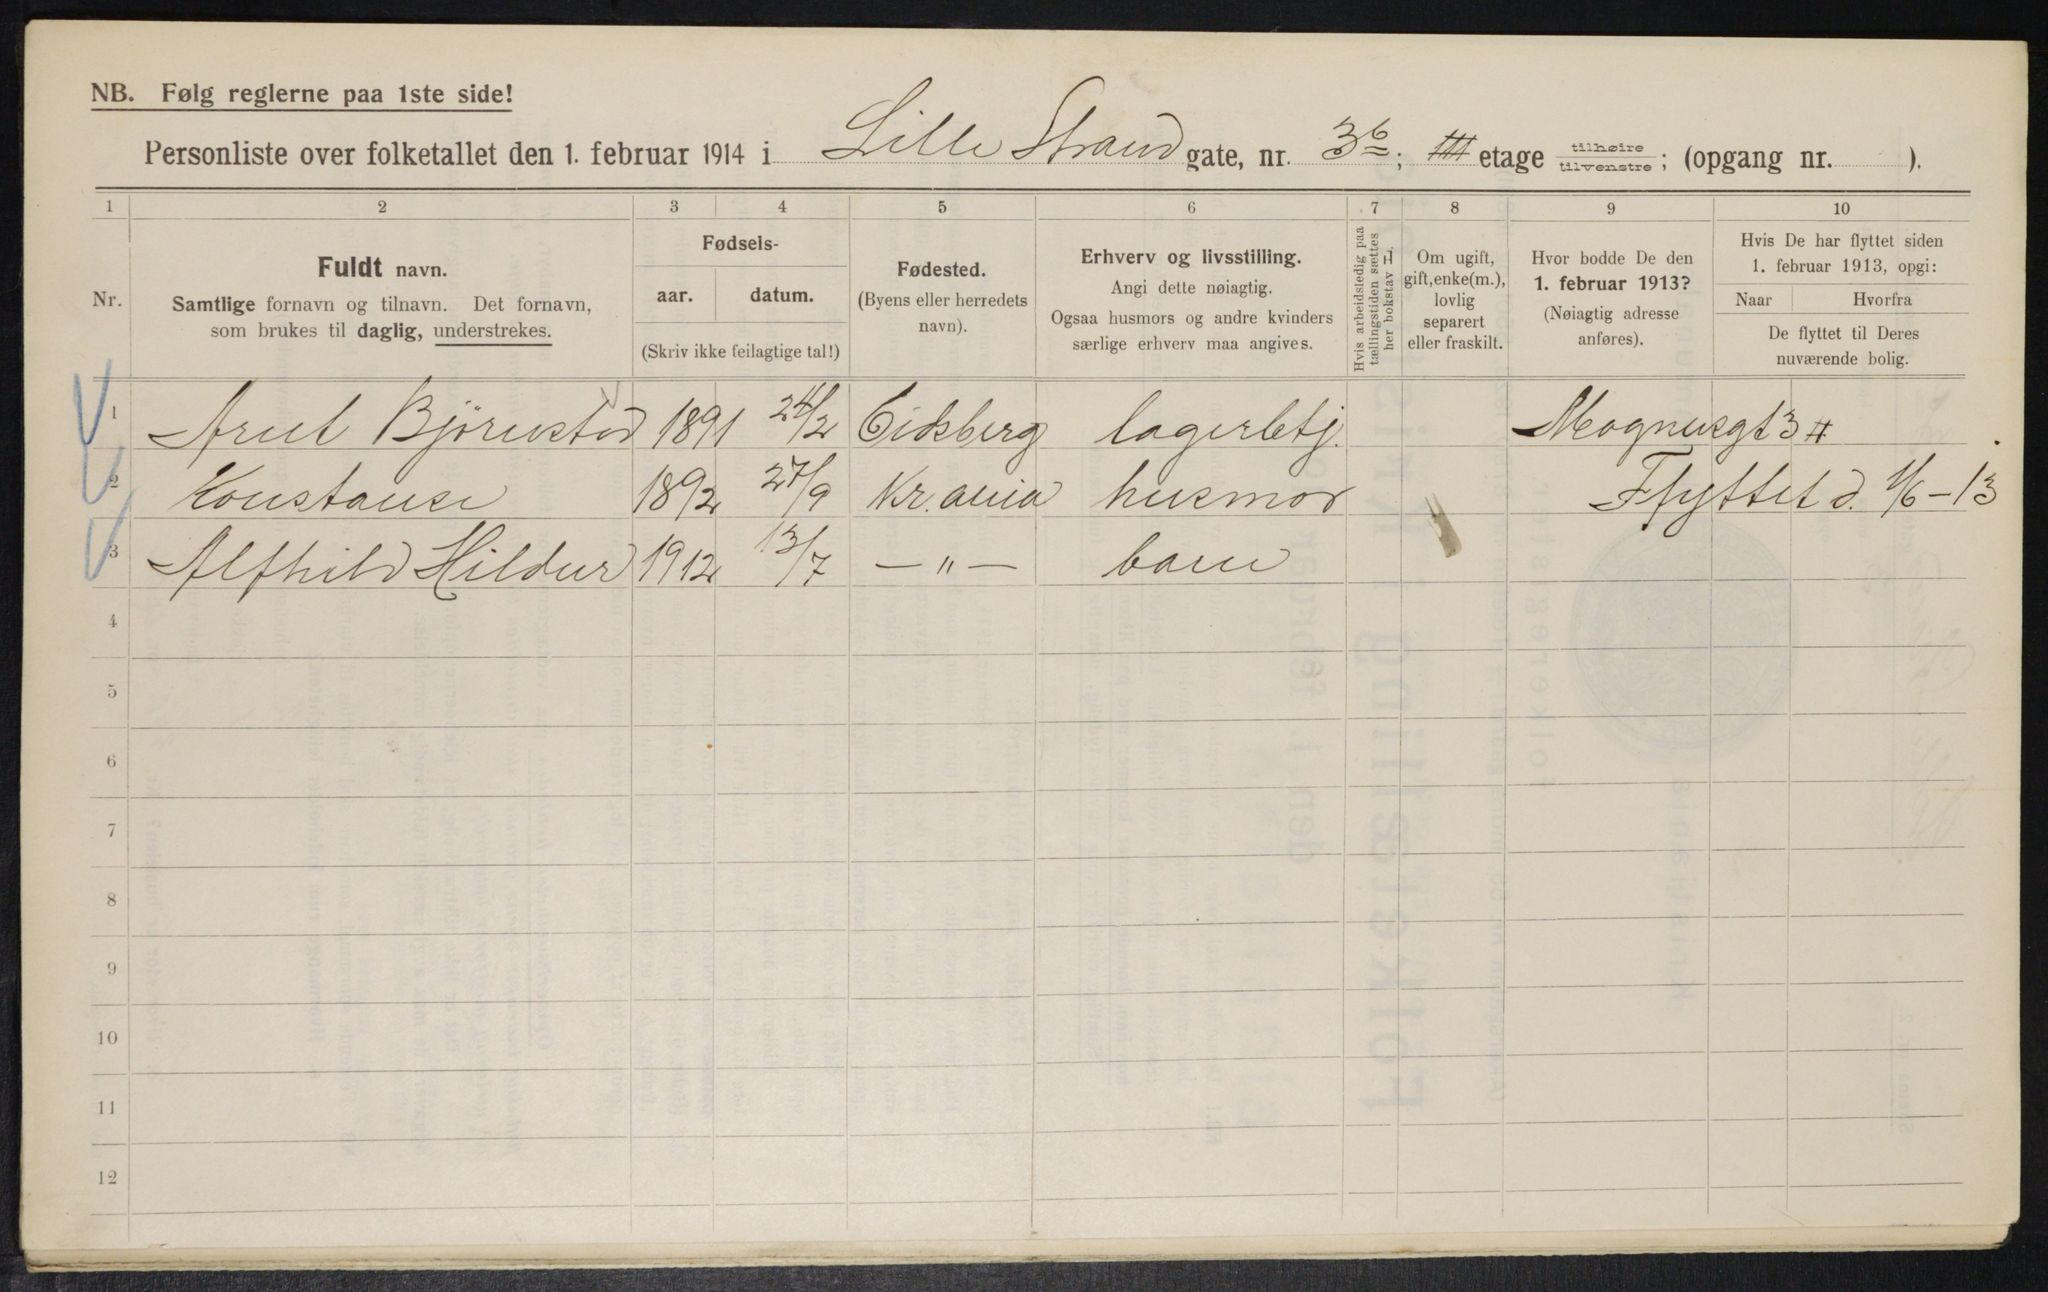 NB. Følg reglerne paa 1ste side!
Personliste over folketallet den 1. februar 1914 i Lille Strand gate, nr. 3b; III etage tilhøire tilvenstre; (opgang nr. ).
1 2 3 4 5 6 7 8 9 10
Nr.
Fuldt navn.
Samtlige fornavn og tilnavn. Det fornavn,
som brukes til daglig, understrekes.
Fødsels-
aar. datum.
(Skriv ikke feilagtige tal!)
Fødested.
(Byens eller herredets
navn).
Erhverv og livsstilling.
Angi dette nøiagtig.
Ogsaa husmors og andre kvinders
særlige erhverv maa angives.
Hvis arbeidsledig paa
tællingstiden sættes
her bokstav L.
Om ugift,
gift, enke(m.),
lovlig
separert
eller fraskilt.
Hvor bodde De den
1. februar 1913?
(Nøiagtig adresse
anføres).
Hvis De har flyttet siden
1. februar 1913, opgi:
Naar Hvorfra
De flyttet til Deres
nuværende bolig.
1 Arnt Bjørnstad 1891 24/2 Eidsberg lagerbetj. Magnusgt 3 II
2 Konstanse 1892 27/9 Kr.ania husmor Flyttet d. 1/6-13
3 Alfhild Hildur 1912 13/7 — " — barn
4
5
6
7
8
9
10
11
12